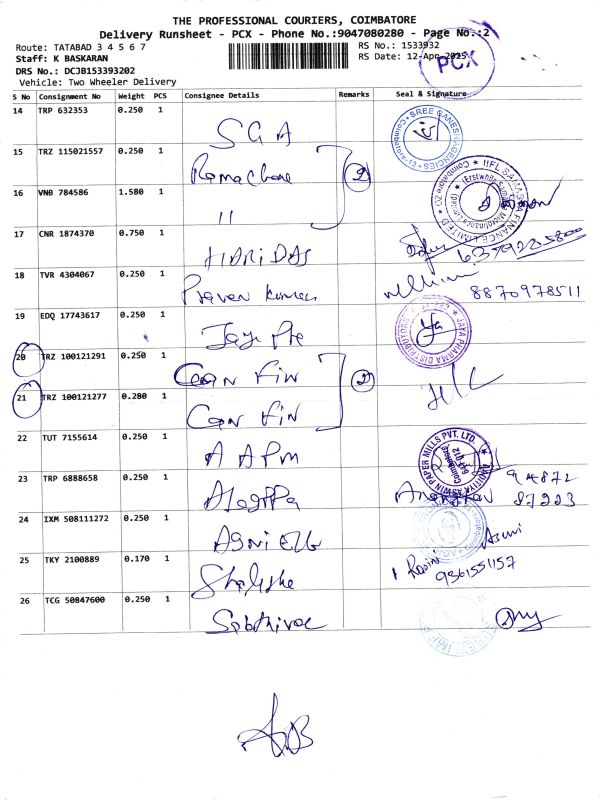 THE PROFESSIONAL COURIERS, COIMBATORE
Delivery Runsheet - PCX - Phone No.:9047080280 - Page No.:2
Route: TATABAD 3 4 5 6 7
RS No.: 1533932
Staff: K BASKARAN
RS Date: 12-Apr-2025
PCX
DRS No.: DCJB153393202
Vehicle: Two Wheeler Delivery
S No Consignment No Weight PCS Consignee Details Remarks Seal & Signature
14 TRP 632353 0.250 1 SGA SREE GANESH AGENCIES
15 TRZ 115021557 0.250 1 2
16 VNB 784586 1.580 1 11 IIFL SAMASTA FINANCE LIMITED
17 CNR 1874370 0.750 1 HARIDAS 6379225800
18 TVR 4304067 0.250 1 Praven Kumar 8870978511
19 EDQ 17743617 0.250 1 JAYA PHARMA DISTRIBUTORS
20 TRZ 100121291 0.250 1 Can Fin 2
21 TRZ 100121277 0.280 1 Can Fin
22 TUT 7155614 0.250 1 AAPM ADITIYA ASWIN PAPER MILLS PVT. LTD. Coimbatore 641 012
23 TRP 6888658 0.250 1 94872 87223
24 IXM 508111272 0.250 1
25 TKY 2100889 0.170 1 9361551157
26 TCG 50847600 0.250 1